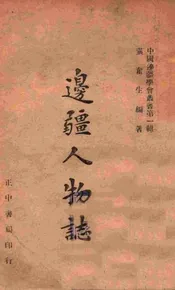 中國邊疆學會叢書第一輯
張奮生編著
邊疆人物誌
正中書局印行